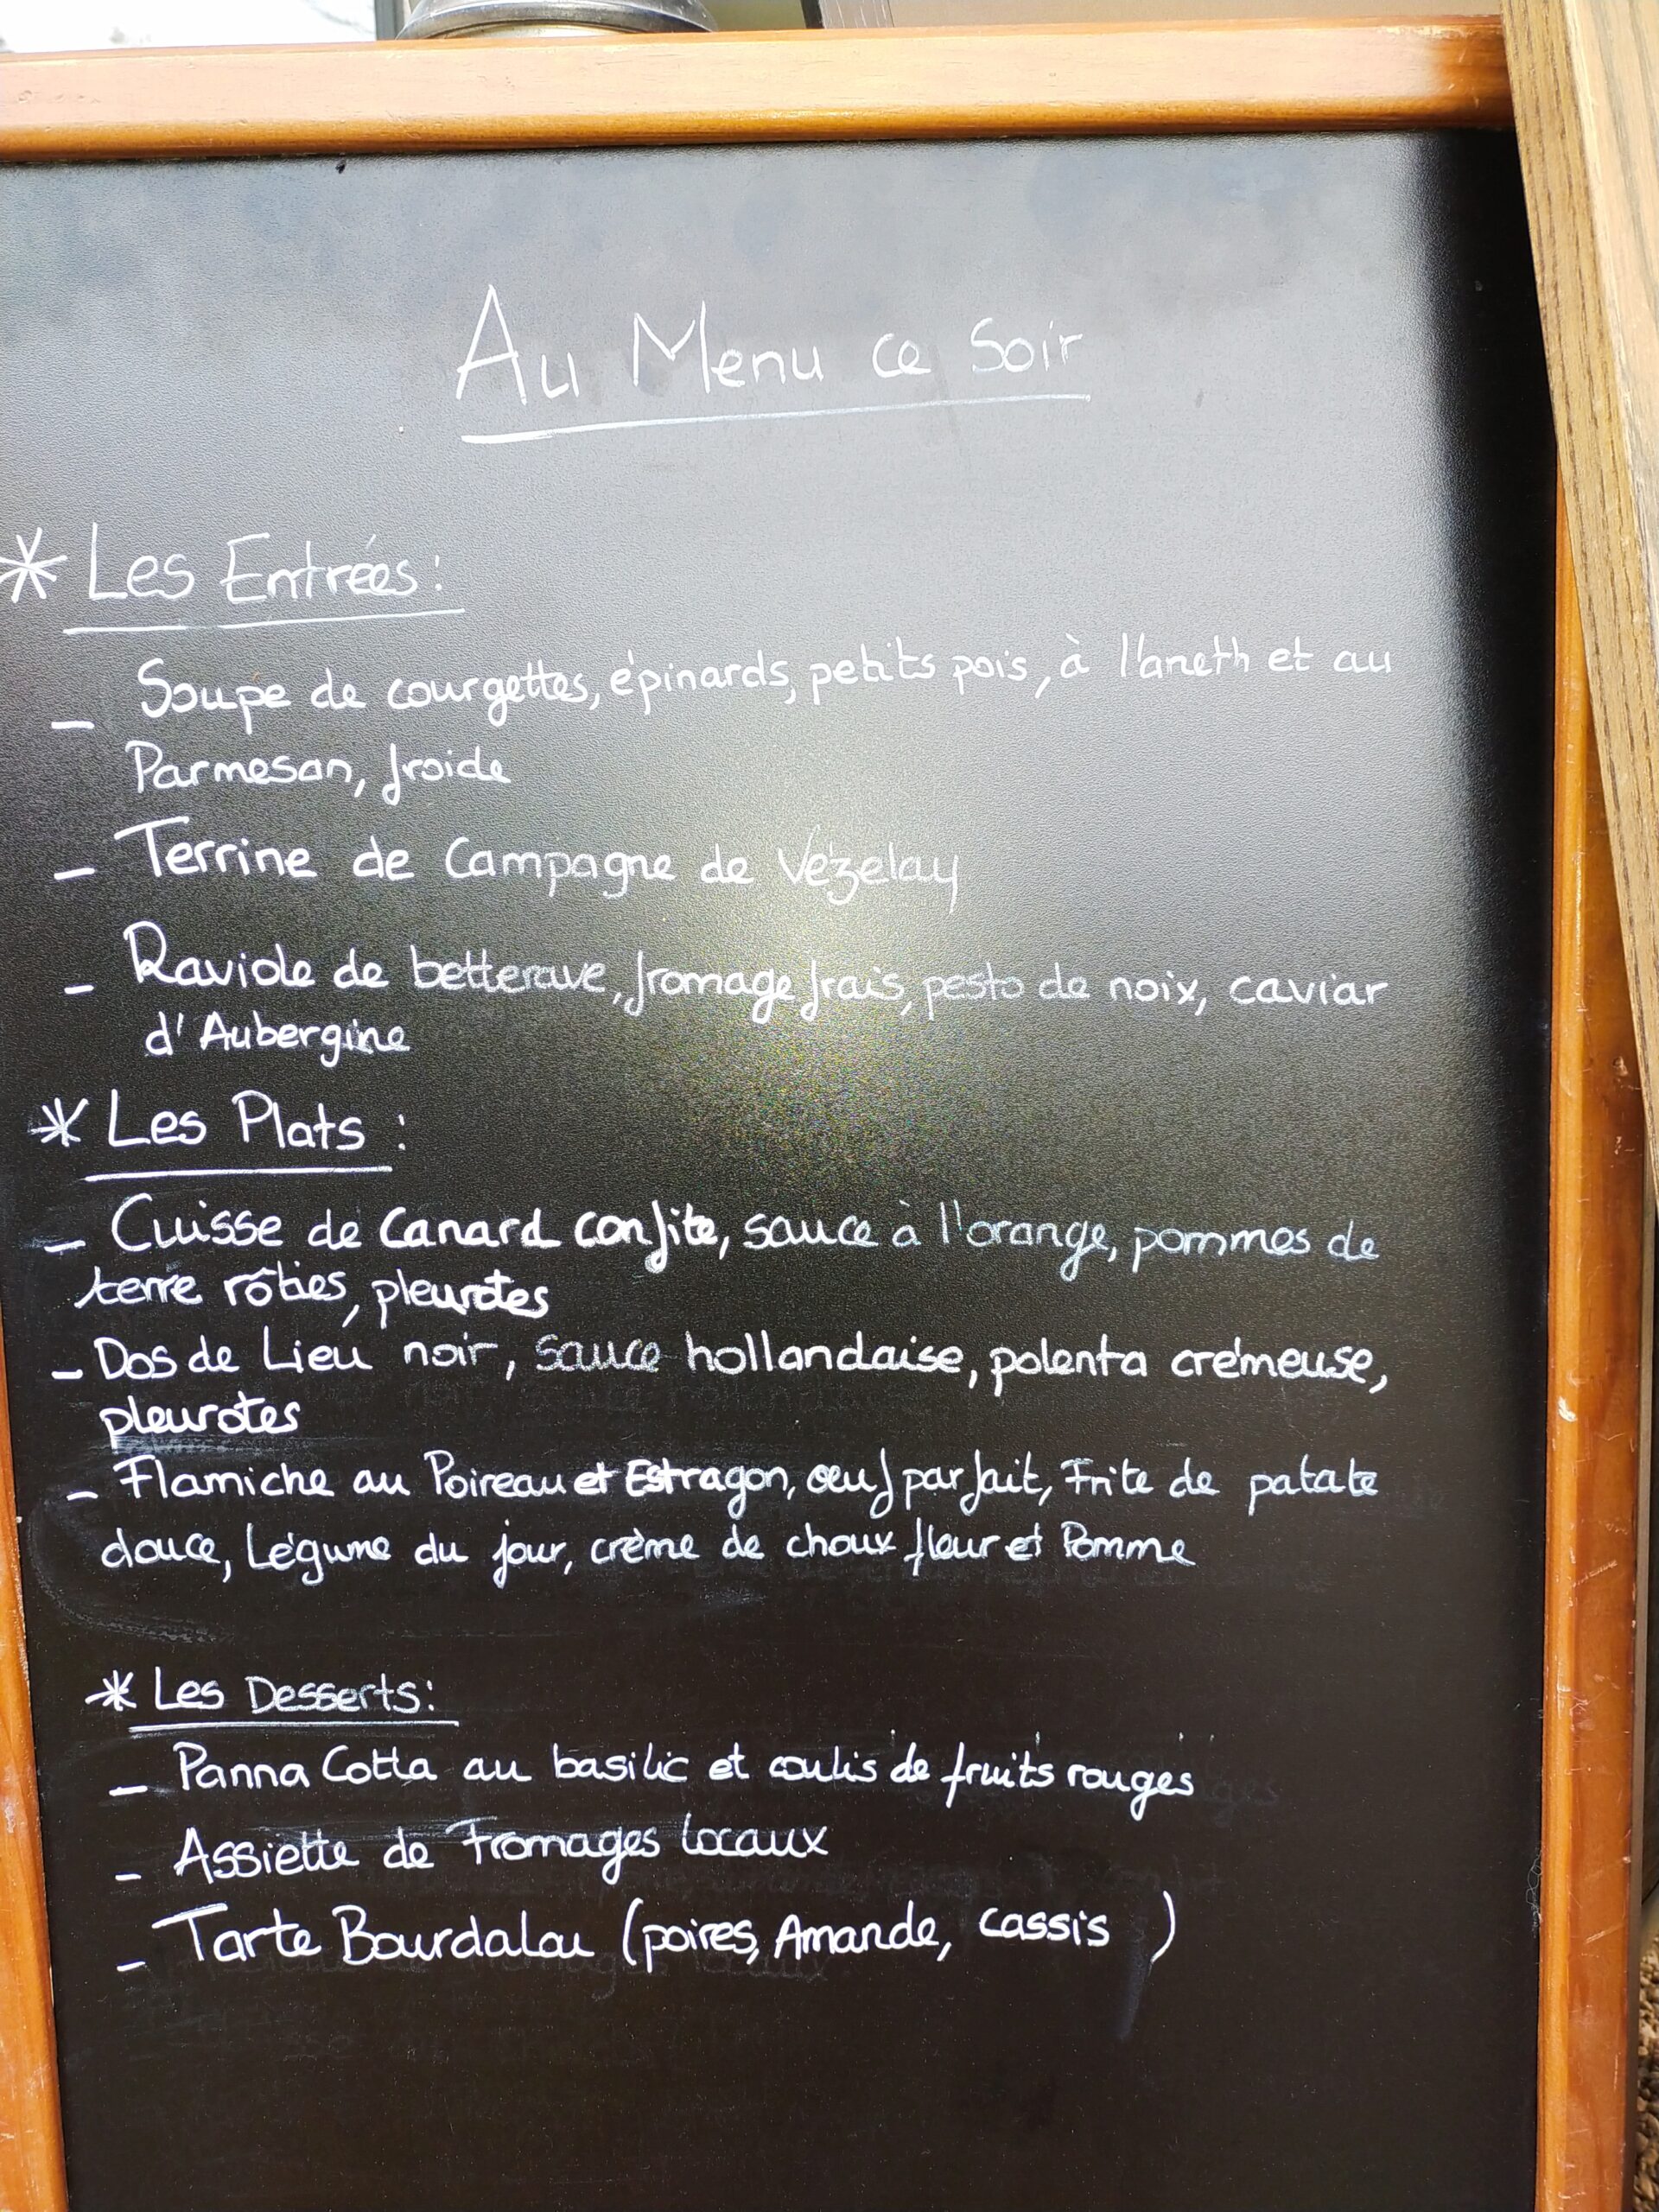 Au Menu ce Soir
* Les Entrées :
_ Soupe de courgettes, épinards, petits pois, à l'aneth et au
Parmesan, froide
_ Terrine de Campagne de Vézelay
_ Raviole de betterave, fromage frais, pesto de noix, caviar
d'Aubergine
* Les Plats :
_ Cuisse de Canard confite, sauce à l'orange, pommes de
terre rôties, pleurotes
_ Dos de Lieu noir, sauce hollandaise, polenta crémeuse,
pleurotes
_ Flamiche au Poireau et Estragon, œuf parfait, Frite de patate
douce, Légume du jour, crème de choux fleur et Pomme
* Les Desserts :
_ Panna Cotta au basilic et coulis de fruits rouges
_ Assiette de Fromages locaux
_ Tarte Bourdalou (poires, Amande, cassis )